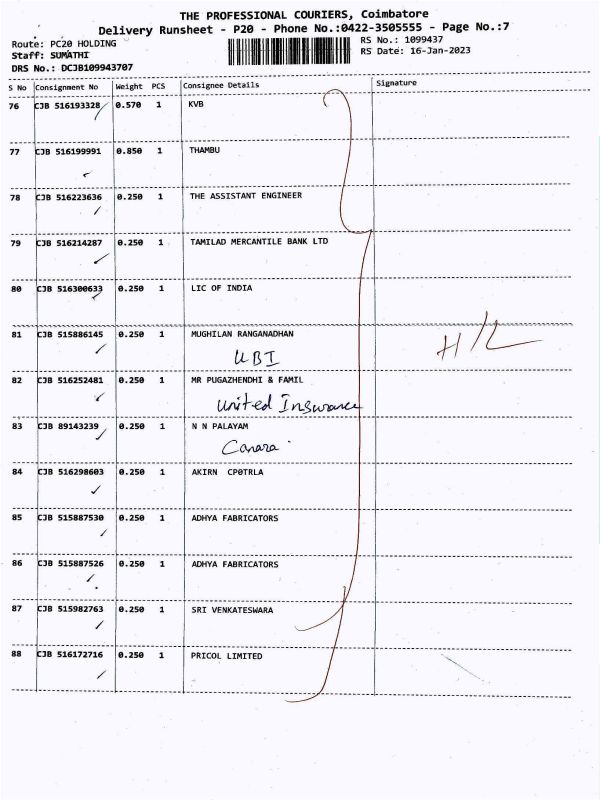 THE PROFESSIONAL COURIERS, Coimbatore
Delivery Runsheet - P20 - Phone No.:0422-3505555 - Page No.:7
Route: PC20 HOLDING
RS No.: 1099437
Staff: SUMATHI
RS Date: 16-Jan-2023
DRS No.: DCJB109943707
S No Consignment No Weight PCS Consignee Details Signature
76 CJB 516193328 0.570 1 KVB
77 CJB 516199991 0.850 1 THAMBU
78 CJB 516223636 0.250 1 THE ASSISTANT ENGINEER
79 CJB 516214287 0.250 1 TAMILAD MERCANTILE BANK LTD
80 CJB 516300633 0.250 1 LIC OF INDIA
81 CJB 515886145 0.250 1 MUGHILAN RANGANADHAN
UBI
H/L
82 CJB 516252481 0.250 1 MR PUGAZHENDHI & FAMIL
United Insurance
83 CJB 89143239 0.250 1 N N PALAYAM
Canara
84 CJB 516298603 0.250 1 AKIRN CPOTRLA
85 CJB 515887530 0.250 1 ADHYA FABRICATORS
86 CJB 515887526 0.250 1 ADHYA FABRICATORS
87 CJB 515982763 0.250 1 SRI VENKATESWARA
88 CJB 516172716 0.250 1 PRICOL LIMITED